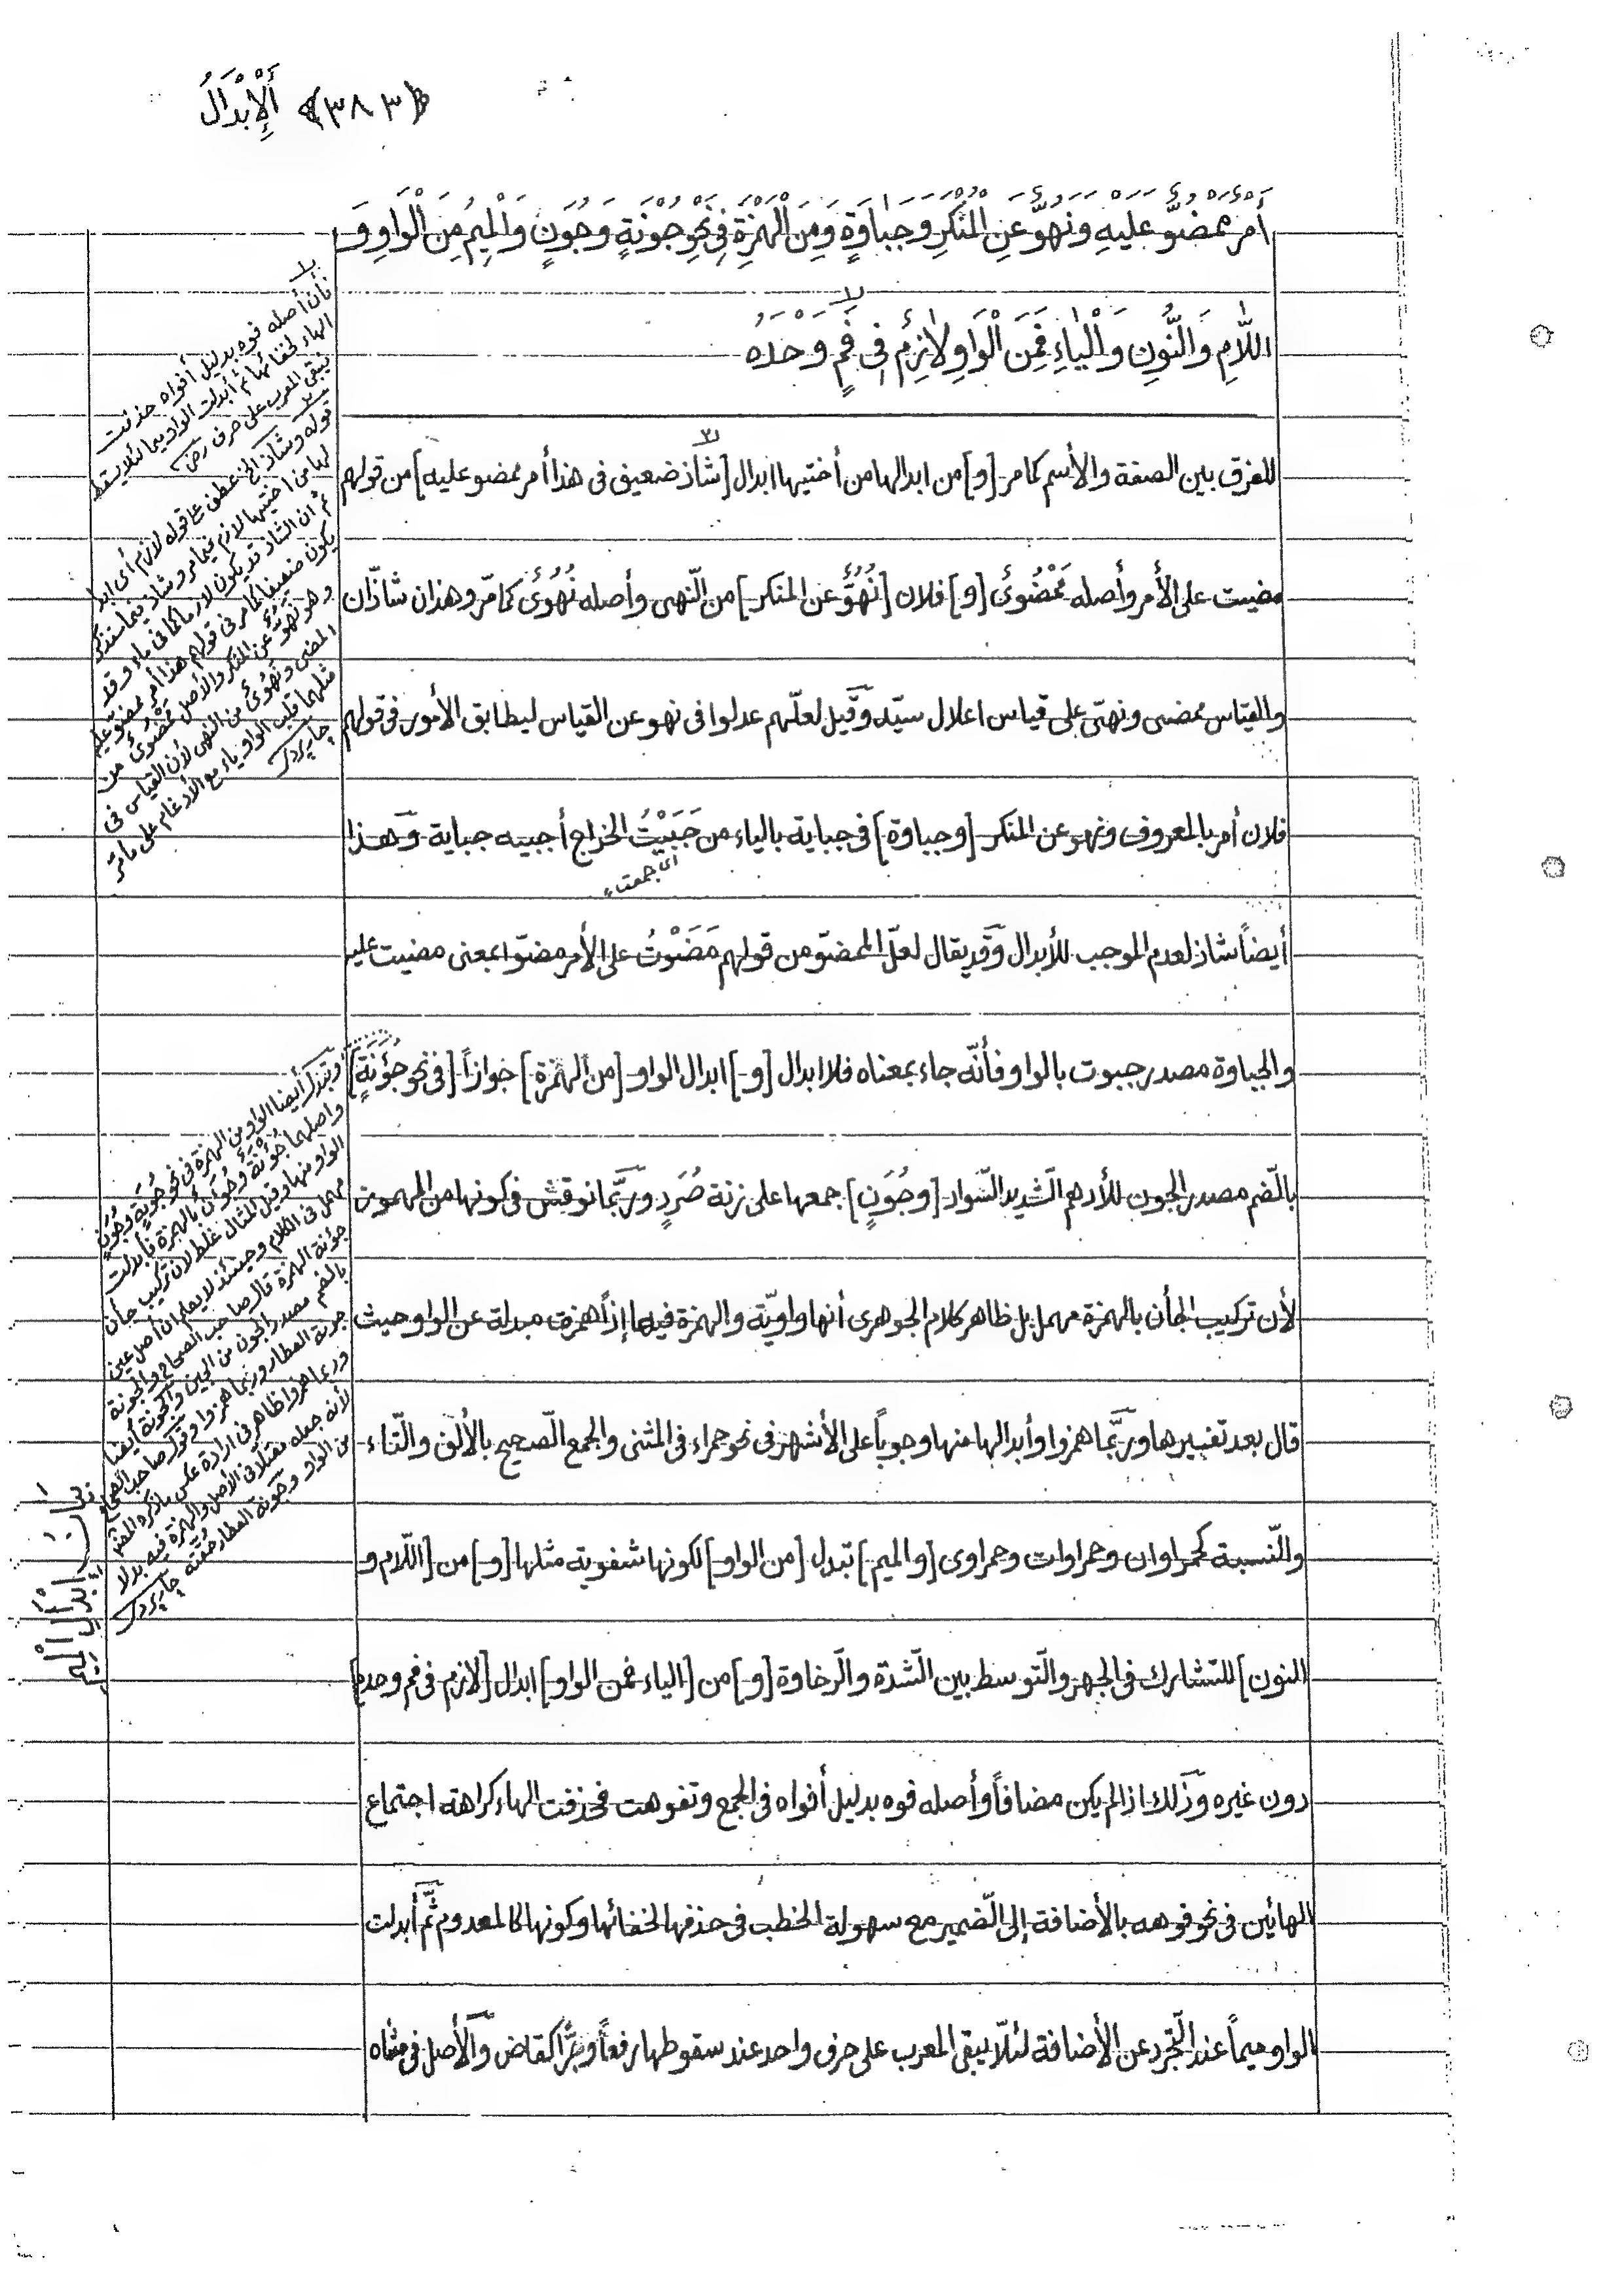 ﴿٣٨٣﴾ أَلْإِبْدَالُ
أَمْرٌ مَمْضُوٌّ عَلَيْهِ وَنَهُوٌّ عَنِ الْمُنْكَرِ وَجَبَاوَةٍ وَمِنَ الْهَمْزَةِ فِي نَحْوِ جُوْنَةٍ وَجُوَنٍ وَالْمِيمُ مِنَ الْوَاوِ وَ
اللّامِ وَالنُّونِ وَالْبَاءِ فَمِنَ الْوَاوِ لَازِمٌ فِي فَمٍ وَحْدَهُ
للفرق بين الصفة والأسم كما مر [و] من ابدالها من أختيها ابدال [شاذ ضعيف فى هذا أمر ممضو عليه] من قولهم
مضيت على الأمر وأصله مَمْضُوىٌ [و] فلان [نَهُوٌّ عن المنكر] من النّهى وأصله نَهُوىٌ كما مرّ وهذان شاذّان
والقياس ممضى ونهىّ على قياس اعلال سيّد وقيل لعلّهم عدلوا فى نهو عن القياس ليطابق الأمور فى قولهم
فلان أمر بالمعروف ونهو عن المنكر [وجباوة] فى جباية بالياء من جَبَيْتُ الخراج أجبيه جباية وهذا
اى جمعته
أيضاً شاذ لعدم الموجب للأبدال وقد يقال لعلّ الممضوّ من قولهم مَضَوْتُ على الأمر مضوّا بمعنى مضيت عليه
والجباوة مصدر جبوت بالواو فأنّه جاء بمعناه فلا ابدال [و] ابدال الواو [من الهمزة] جوازاً [فى نحو جُؤنَةٍ]
بالضّم مصدر الجون للأدهم الشّديد السّواد [وجُوَنٍ] جمعها على زنة صُرَدٍ وربّما نوقش فى كونها من المهموز
لأن تركيب الجأن بالهمزة مهمل بل ظاهر كلام الجوهرى أنها واويّة والهمزة فيها إذاً همزة مبدلة عن الواو حيث
قال بعد تفسيرها وربّما همزوا وأبدالها منها وجوباً على الأشهر فى نحو حمراء فى المثنى والجمع الصّحيح بالألف والتّاء
والنّسبة كحمراوان وحمراوات وحمراوى [والميم] تبدل [من الواو] لكونها شفوية مثلها [و] من [اللّام و
النون] للتشارك فى الجهر والتّوسط بين الشّدّة والرّخاوة [و] من [الباء فمن الواو] ابدال [لازم فى فم وحده]
دون غيره وذلك اذا لم يكن مضافاً وأصله فوه بدليل أفواه فى الجمع وتفوهت فحذفت الهاء كراهة اجتماع
الهائين فى نحو فوهه بالأضافة إلى الضّمير مع سهولة الخطب فى حذفها لخفائها وكونها كالمعدوم ثمّ أبدلت
الواو ميماً عند التّجرد عن الأضافة لئلّا يبقى المعرب على حرف واحد عند سقوطها رفعاً وجرّاً كقاض والأصل فى مثناه
فأن أصله فوه بدليل أفواه حذفت
الهاء لخفائها ثم أبدلت الواو ميما لئلا يسقط
فيبقى المعرب على حرف رضى
قوله وشاذ الخ عطف على قوله لازم أى ابدا
لها من اختيها لازم فيما مر وشاذ فيما سنذكر
ثم ان الشاذ قد يكون لازما كما فى ماء وقد
يكون ضعيفا كما مر فى قولهم هذا أمر ممضوّ عليه
وهو نهوّ عن المنكر والأصل ممضُوىٌ من
المضى ونهُوىٌ من النهى لأن القياس فى
مثلهما قلب الواو ياء مع الأدغام على ما مرّ
چارپردى
وتبدل أيضا الواو من الهمزة فى نحو جُونَةٍ وجُوَنٍ
واصلهما جُؤْنَة وجُؤَن بالهمزة فأبدلت
الواو منها وقيل المثال غلط لان تركيب جأن
مهمل فى الكلام وحينئذ لا يعلم ان أصل عين
جؤنة الهمزة قال صاحب الصحاح والجونة
بالضم مصدر الجون من الخيل والجونة أيضا
جونة العطار وربما همزوا وقول صاحب الصحاح
وربما همزوا ظاهر فى ارادة عكس ما ذكره المصنف
لأنه جعله معتلا فى الأصل والهمزة فيه بدلا
من الواو وجونة العطار حقته چارپردى
ابْدَالِ الْمِيم